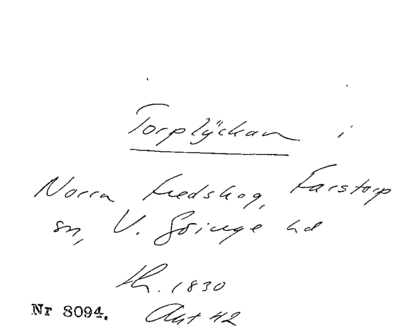 Torplyckan i
Norra Fredskog, Farstorp
sn, V. Göinge hd
Th. 1830
Nr 8094. Akt 42